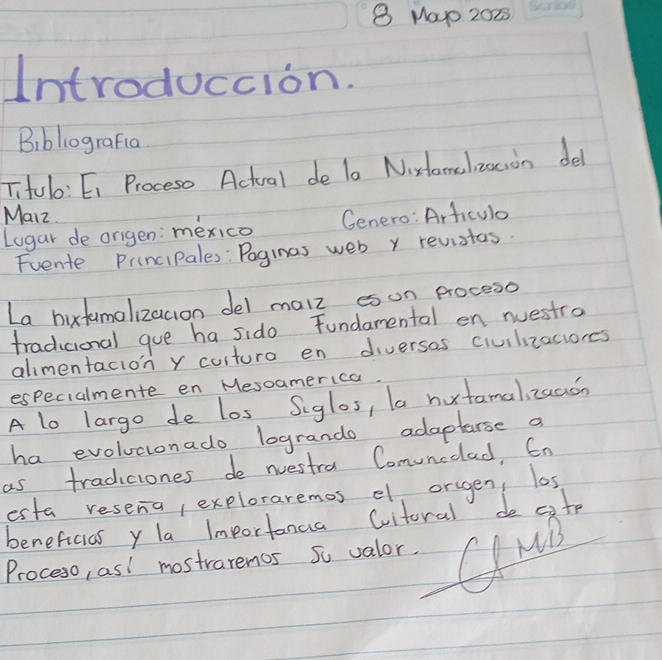 8 Mayo 2025
Introducción.
Bibliografia
Titulo: El Proceso Actual de la Nixtamalización del
Maiz.
Lugar de origen: méxico Genero: Articulo
Fuente Principales: Paginas web y revistas.
La nixtamalizacion del maiz es un proceso
tradicional que ha sido Fundamental en nuestra
alimentación y cultura en diversas civilizaciones
especialmente en Mesoamerica.
A lo largo de los Siglos, la nixtamalización
ha evolucionado logrando adaptarse a
as tradiciones de nuestra Comunidad, En
esta reseña, exploraremos el origen, los
beneficios y la Importancia Cultural de este
Proceso, así mostraremos su valor.